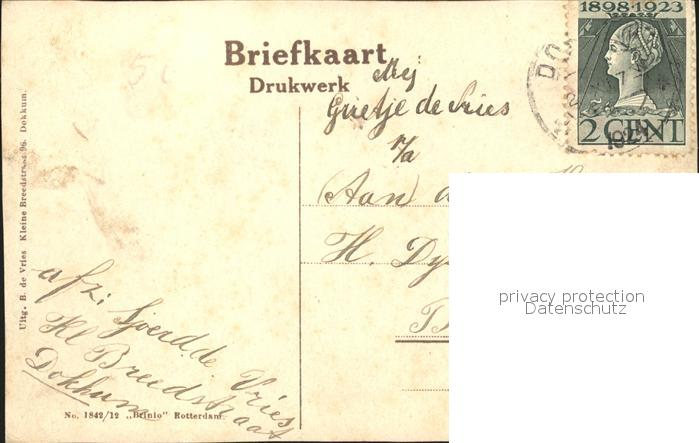 1898·1923
2 CENT
Briefkaart
Drukwerk
Mej
Grietje de Vries
p/a
(Aan)
H. Dy
privacy protection
Datenschutz
Uitg. B. de Vries Kleine Breedstraat 96. Dokkum.
afz: Sjoerd de Vries
Kl Breedstraat
Dokkum
No. 1842/12 „Brinio" Rotterdam.